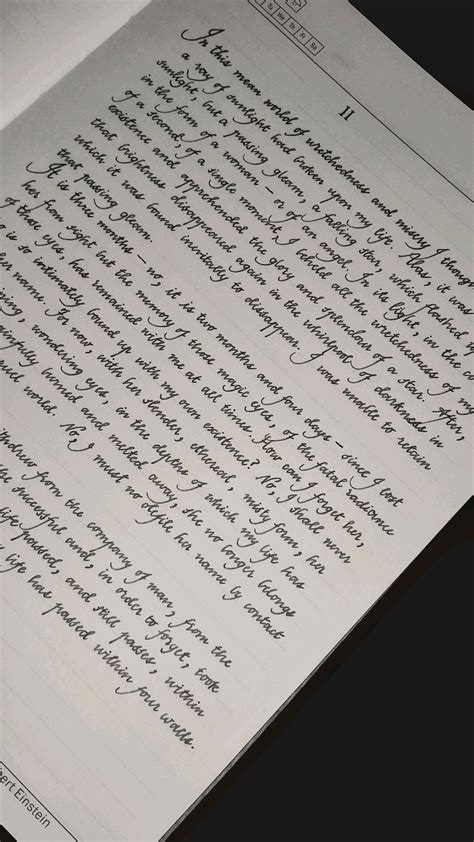 Tu We Th Fr Sa
11
In this mean world of wretchedness and misery I thought
a ray of sunlight had broken upon my life. Alas, it was
sunlight, but a passing gleam, a falling star, which flashed
in the form of a woman – or of an angel. In its light, in the
of a second, of a single moment, I beheld all the wretchedness of my
existence and apprehended the glory and splendour of a star. After,
that brightness disappeared again in the whirlpool of darkness in
which it was bound inevitably to disappear. I was unable to retain
that passing gleam.
It is three months – no, it is two months and four days – since I lost
her from sight but the memory of those magic eyes, of the fatal radiance
of those eyes, has remained with me at all times. How can I forget her,
who is so intimately bound up with my own existence? No, I shall never
her name. For now, with her slender, ethereal, misty form, her
wondering eyes, in the depths of which my life has
burned and melted away, she no longer belongs
world. No, I must not defile her name by contact
withdrew from the company of man, from the
the successful and, in order to forget, took
life passed, and still passes, within
life has passed within four walls.
Einstein